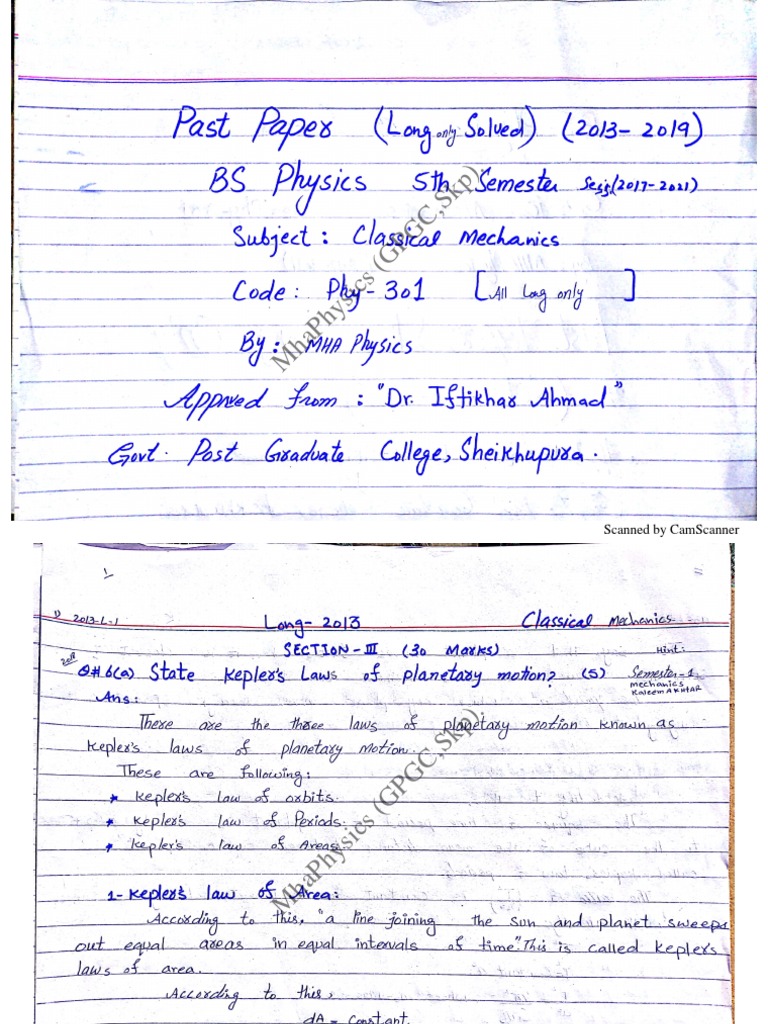 Past Paper (Long only Solved) (2013-2019)
BS Physics 5th Semester Sess(2017-2021)
Subject: Classical Mechanics
Code: Phy-301 [All Long only]
By: MHA Physics
Approved from: "Dr. Iftikhar Ahmad"
Govt. Post Graduate College, Sheikhupura.
MhaPhysics (GPGC,Skp)
Scanned by CamScanner
1) 2013-L-1 Long-2013 Classical Mechanics
SECTION-III (30 Marks) Hint:
Q#6(a) State Kepler's Laws of planetary motion? (5) Semester-1
mechanics
Kaleem AKHTAR
Ans:
There are the three laws of planetary motion known as
Kepler's laws of planetary Motion.
These are following:
* Kepler's law of orbits.
* Kepler's law of Periods.
* Kepler's law of Areas.
MhaPhysics (GPGC,Skp)
1- Kepler's law of Area:
According to this, "a line joining the sun and planet sweeps
out equal areas in equal intervals of time". This is called Kepler's
laws of area.
According to this,
dA = Constant.